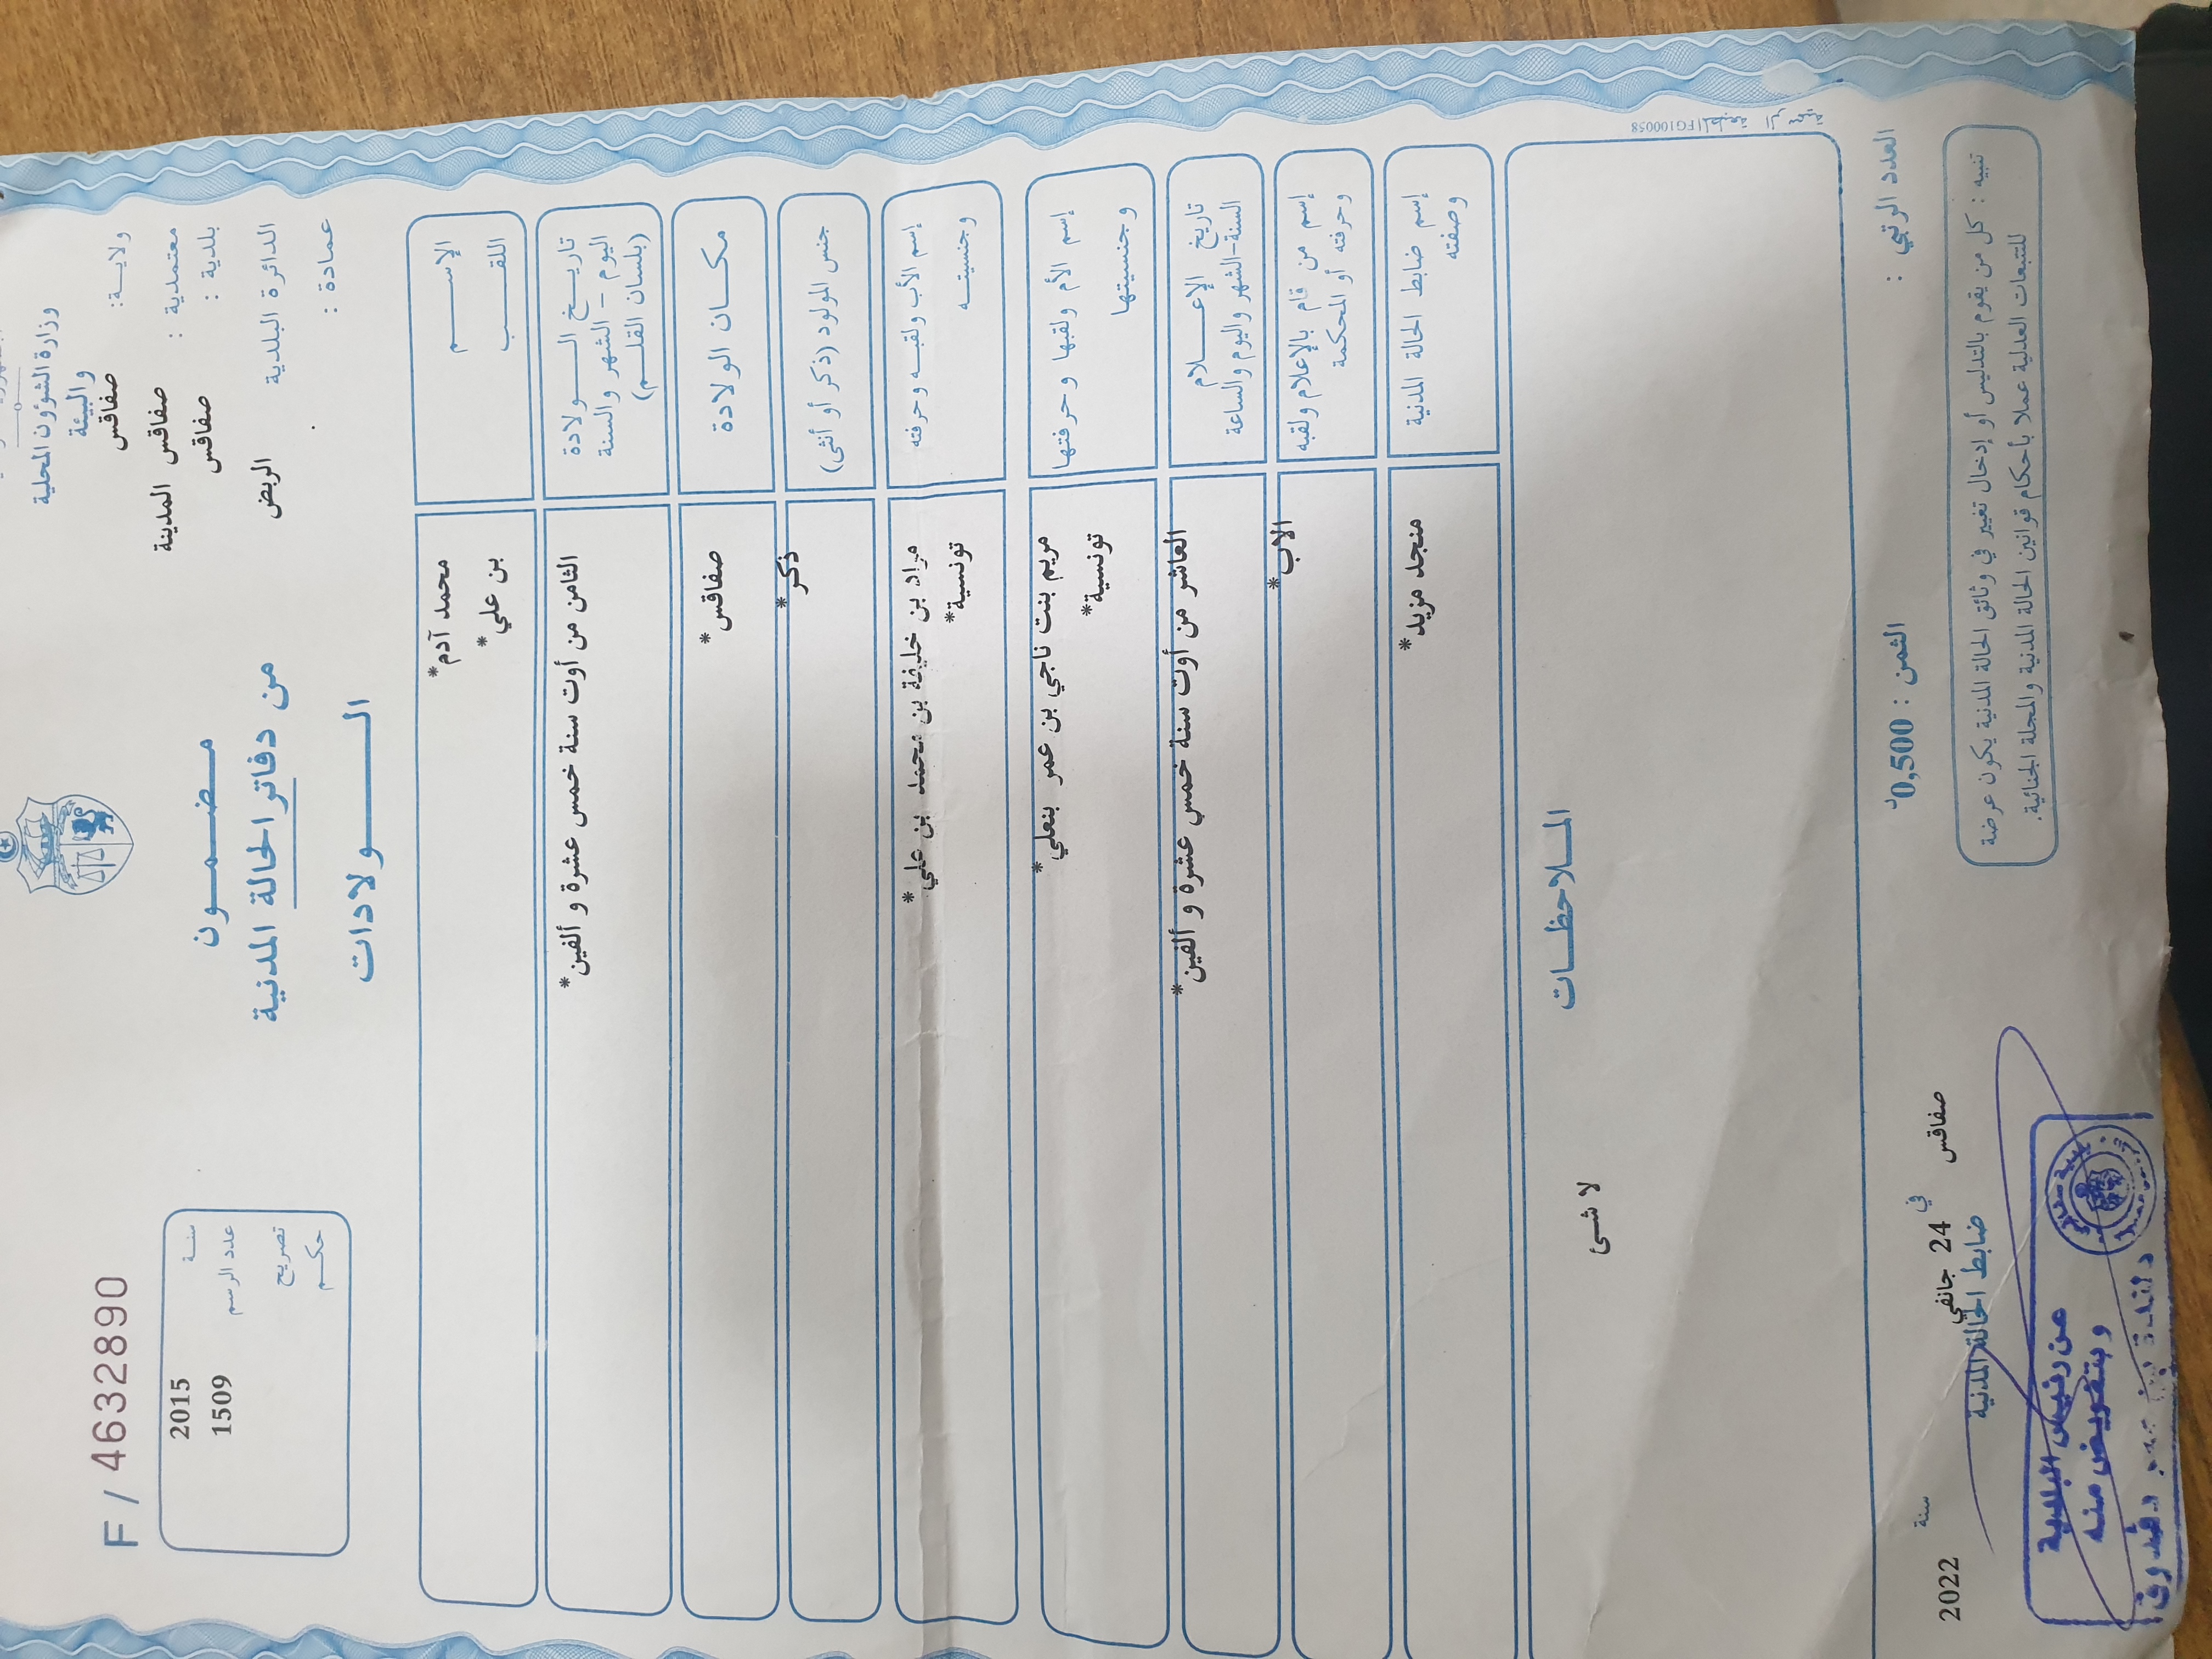 وزارة الشؤون المحلية
والبيئة
ولاية: صفاقس
معتمدية : صفاقس المدينة
بلدية : صفاقس
الدائرة البلدية الربض
عمادة :
F / 4632890
سنة 2015
عدد الرسم 1509
تصريح
حكم
مضمون
من دفاتر الحالة المدنية
الولادات
الإسم محمد آدم*
اللقب بن علي*
تاريخ الولادة
اليوم - الشهر والسنة
(بلسان القلم)
الثامن من أوت سنة خمس عشرة و ألفين*
مكان الولادة صفاقس*
جنس المولود (ذكر أو أنثى) ذكر*
إسم الأب ولقبه وحرفته مراد بن خليفة بن محمد بن علي*
وجنسيته تونسية*
إسم الأم ولقبها وحرفتها مريم بنت ناجي بن عمر بنعلي*
وجنسيتها تونسية*
تاريخ الإعلام
السنة-الشهر واليوم والساعة
العاشر من أوت سنة خمس عشرة و ألفين*
إسم من قام بالإعلام ولقبه الاب*
وحرفته أو المحكمة
إسم ضابط الحالة المدنية منجد مزيد*
وصفته
الملاحظات
لا شئ
المطبعة الرسمية FG100058
العدد الرتبي :
الثمن : 0,500د
صفاقس في 24 جانفي سنة 2022
ضابط الحالة المدنية
تنبيه : كل من يقوم بالتدليس أو إدخال تغيير في وثائق الحالة المدنية يكون عرضة
للتتبعات العدلية عملا بأحكام قوانين الحالة المدنية والمجلة الجنائية.
عن رئيس البلدية
وبتفويض منه